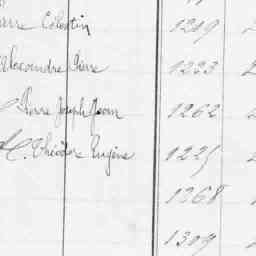 Célestin 1209
Alexandre Pierre 1223
Pierre Joseph Jean 1262
Théodore Eugène 1225
1268
1309